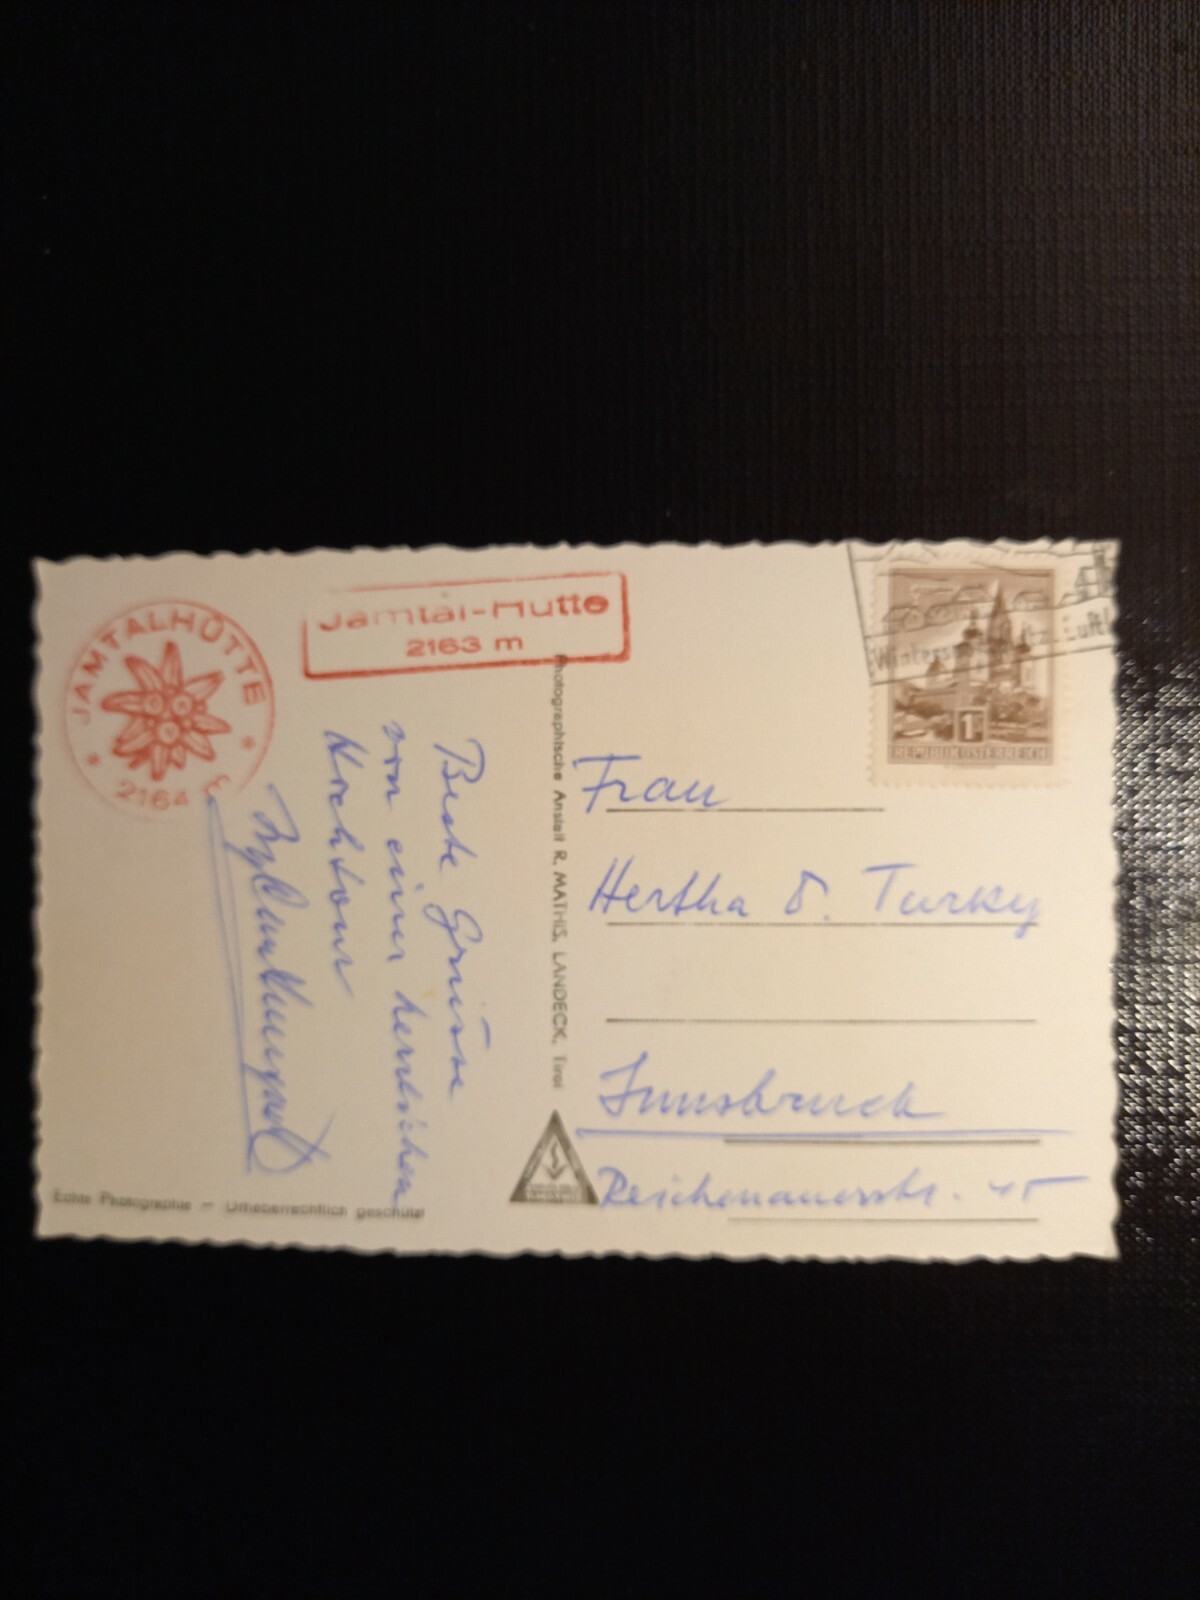 JAMTALHÜTTE
2164
Jamtal-Hütte
2163 m
Beste Grüsse
von einer herrlichen
Hochtour
Photographische Anstalt R. MATHIS, LANDECK, Tirol
Echte Photographie — Urheberrechtlich geschützt
Winters Luft
1
REPUBLIK ÖSTERREICH
Frau
Hertha Turky
Innsbruck
Reichenauerstr. 45